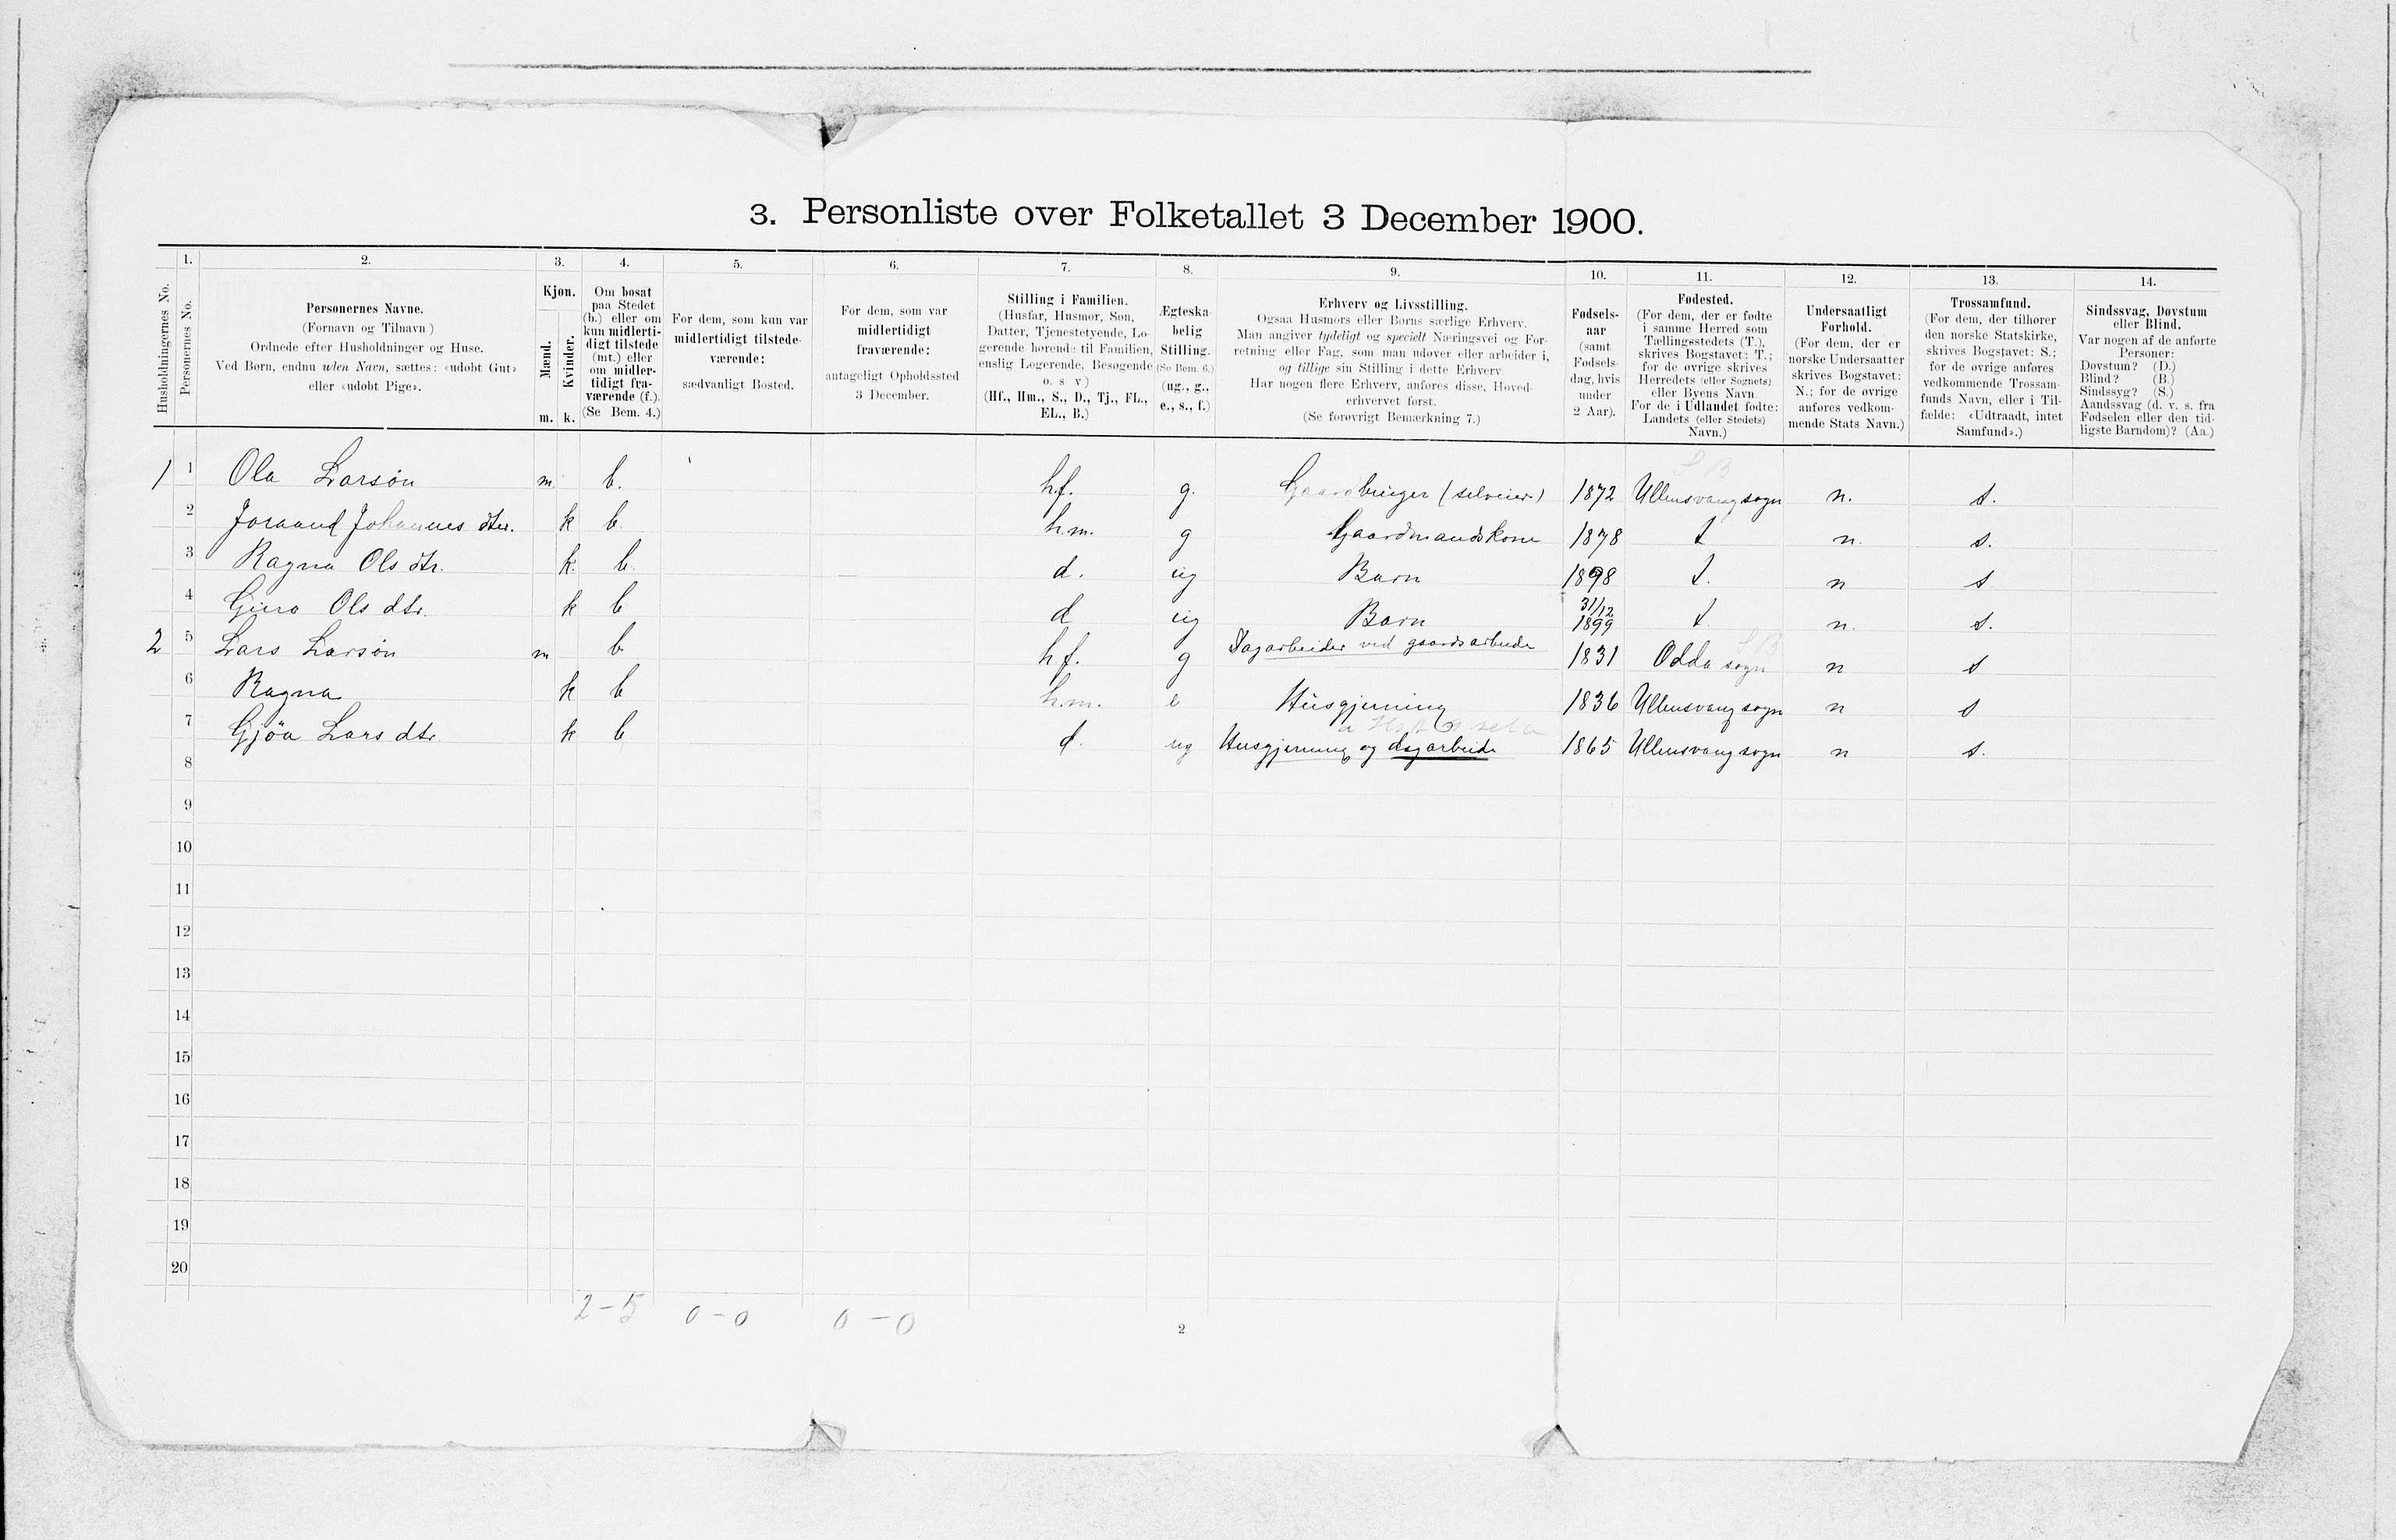 3. Personliste over Folketallet 3 December 1900.
1. 2. 3. 4. 5. 6. 7. 8. 9. 10. 11. 12. 13. 14.
Husholdningernes No.
Personernes No.
Personernes Navne.
(Fornavn og Tilnavn)
Ordnede efter Husholdninger og Huse.
Ved Børn, endnu uden Navn, sættes: «udøbt Gut»
eller «udøbt Pige».
Kjøn.
Mænd.
Kvinder.
m. k.
Om bosat
paa Stedet
(b.) eller om
kun midlerti-
digt tilstede
(mt.) eller
om midler-
tidigt fra-
værende (f.).
(Se Bem. 4.)
For dem, som kun var
midlertidigt tilstede-
værende:
sædvanligt Bosted.
For dem, som var
midlertidigt
fraværende:
antageligt Opholdssted
3 December.
Stilling i Familien.
(Husfar, Husmor, Søn,
Datter, Tjenestetyende, Lo-
gerende hørende til Familien,
enslig Logerende, Besøgende
o. s v)
(Hf., Hm., S., D., Tj., FL.,
EL., B.)
Ægteska-
belig
Stilling.
(Se Bem. 6.)
(ug., g.,
e., s., f.)
Erhverv og Livsstilling.
Ogsaa Husmors eller Børns særlige Erhverv.
Man angiver tydeligt og specielt Næringsvei og For-
retning eller Fag, som man udøver eller arbeider i,
og tillige sin Stilling i dette Erhverv
Har nogen flere Erhverv, anføres disse, Hoved-
erhvervet først.
(Se forøvrigt Bemærkning 7.)
Fødsels-
aar
(samt
Fødsels-
dag, hvis
under
2 Aar).
Fødested.
(For dem, der er fødte
i samme Herred som
Tællingsstedets (T.),
skrives Bogstavet: T.;
for de øvrige skrives
Herredets (eller Sognets)
eller Byens Navn
For de i Udlandet fødte:
Landets (eller Stedets)
Navn.)
Undersaatligt
Forhold.
(For dem, der er
norske Undersaatter
skrives Bogstavet:
N.; for de øvrige
anføres vedkom-
mende Stats Navn.)
Trossamfund.
(For dem, der tilhører
den norske Statskirke,
skrives Bogstavet: S.;
for de øvrige anføres
vedkommende Trossam-
funds Navn, eller i Til-
fælde: «Udtraadt, intet
Samfund».)
Sindssvag, Døvstum
eller Blind.
Var nogen af de anførte
Personer:
Døvstum? (D.)
Blind? (B.)
Sindssyg? (S.)
Aandssvag (d. v. s. fra
Fødselen eller den tid-
ligste Barndom)? (Aa.)
1 1 Ola Larsøn m. b. hf. g. Gaardbruger (selveier) 1872 Ullensvang sogn n. s.
2 Johannes dtr. k b. h.m. g Gaardmandskone 1878 t n. s.
3 Ragna Ols dtr. k. b. d. ug Barn 1898 t. n s
4 Guro Ols dtr. k b d ug Barn 31/12 1899 t. n. s.
2 5 Lars Larsøn m b hf. g Dagarbeider ved gaardsarbeide 1831 Odda sogn n s
6 Ragna k b h.m. e Husgjerning 1836 Ullensvang sogn n s
7 Gjöa Lars dtr k b d. ug Husgjerning og dagarbeide 1865 Ullensvang sogn n s.
8
9
10
11
12
13
14
15
16
17
18
19
20
2-5 0-0 0-0
2